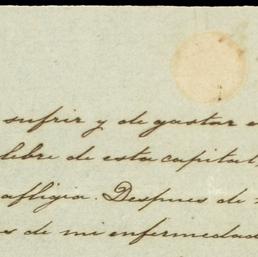 sufrir y de gastar
lebre de esta capital,
afligia. Despues de
s de mi enfermedad